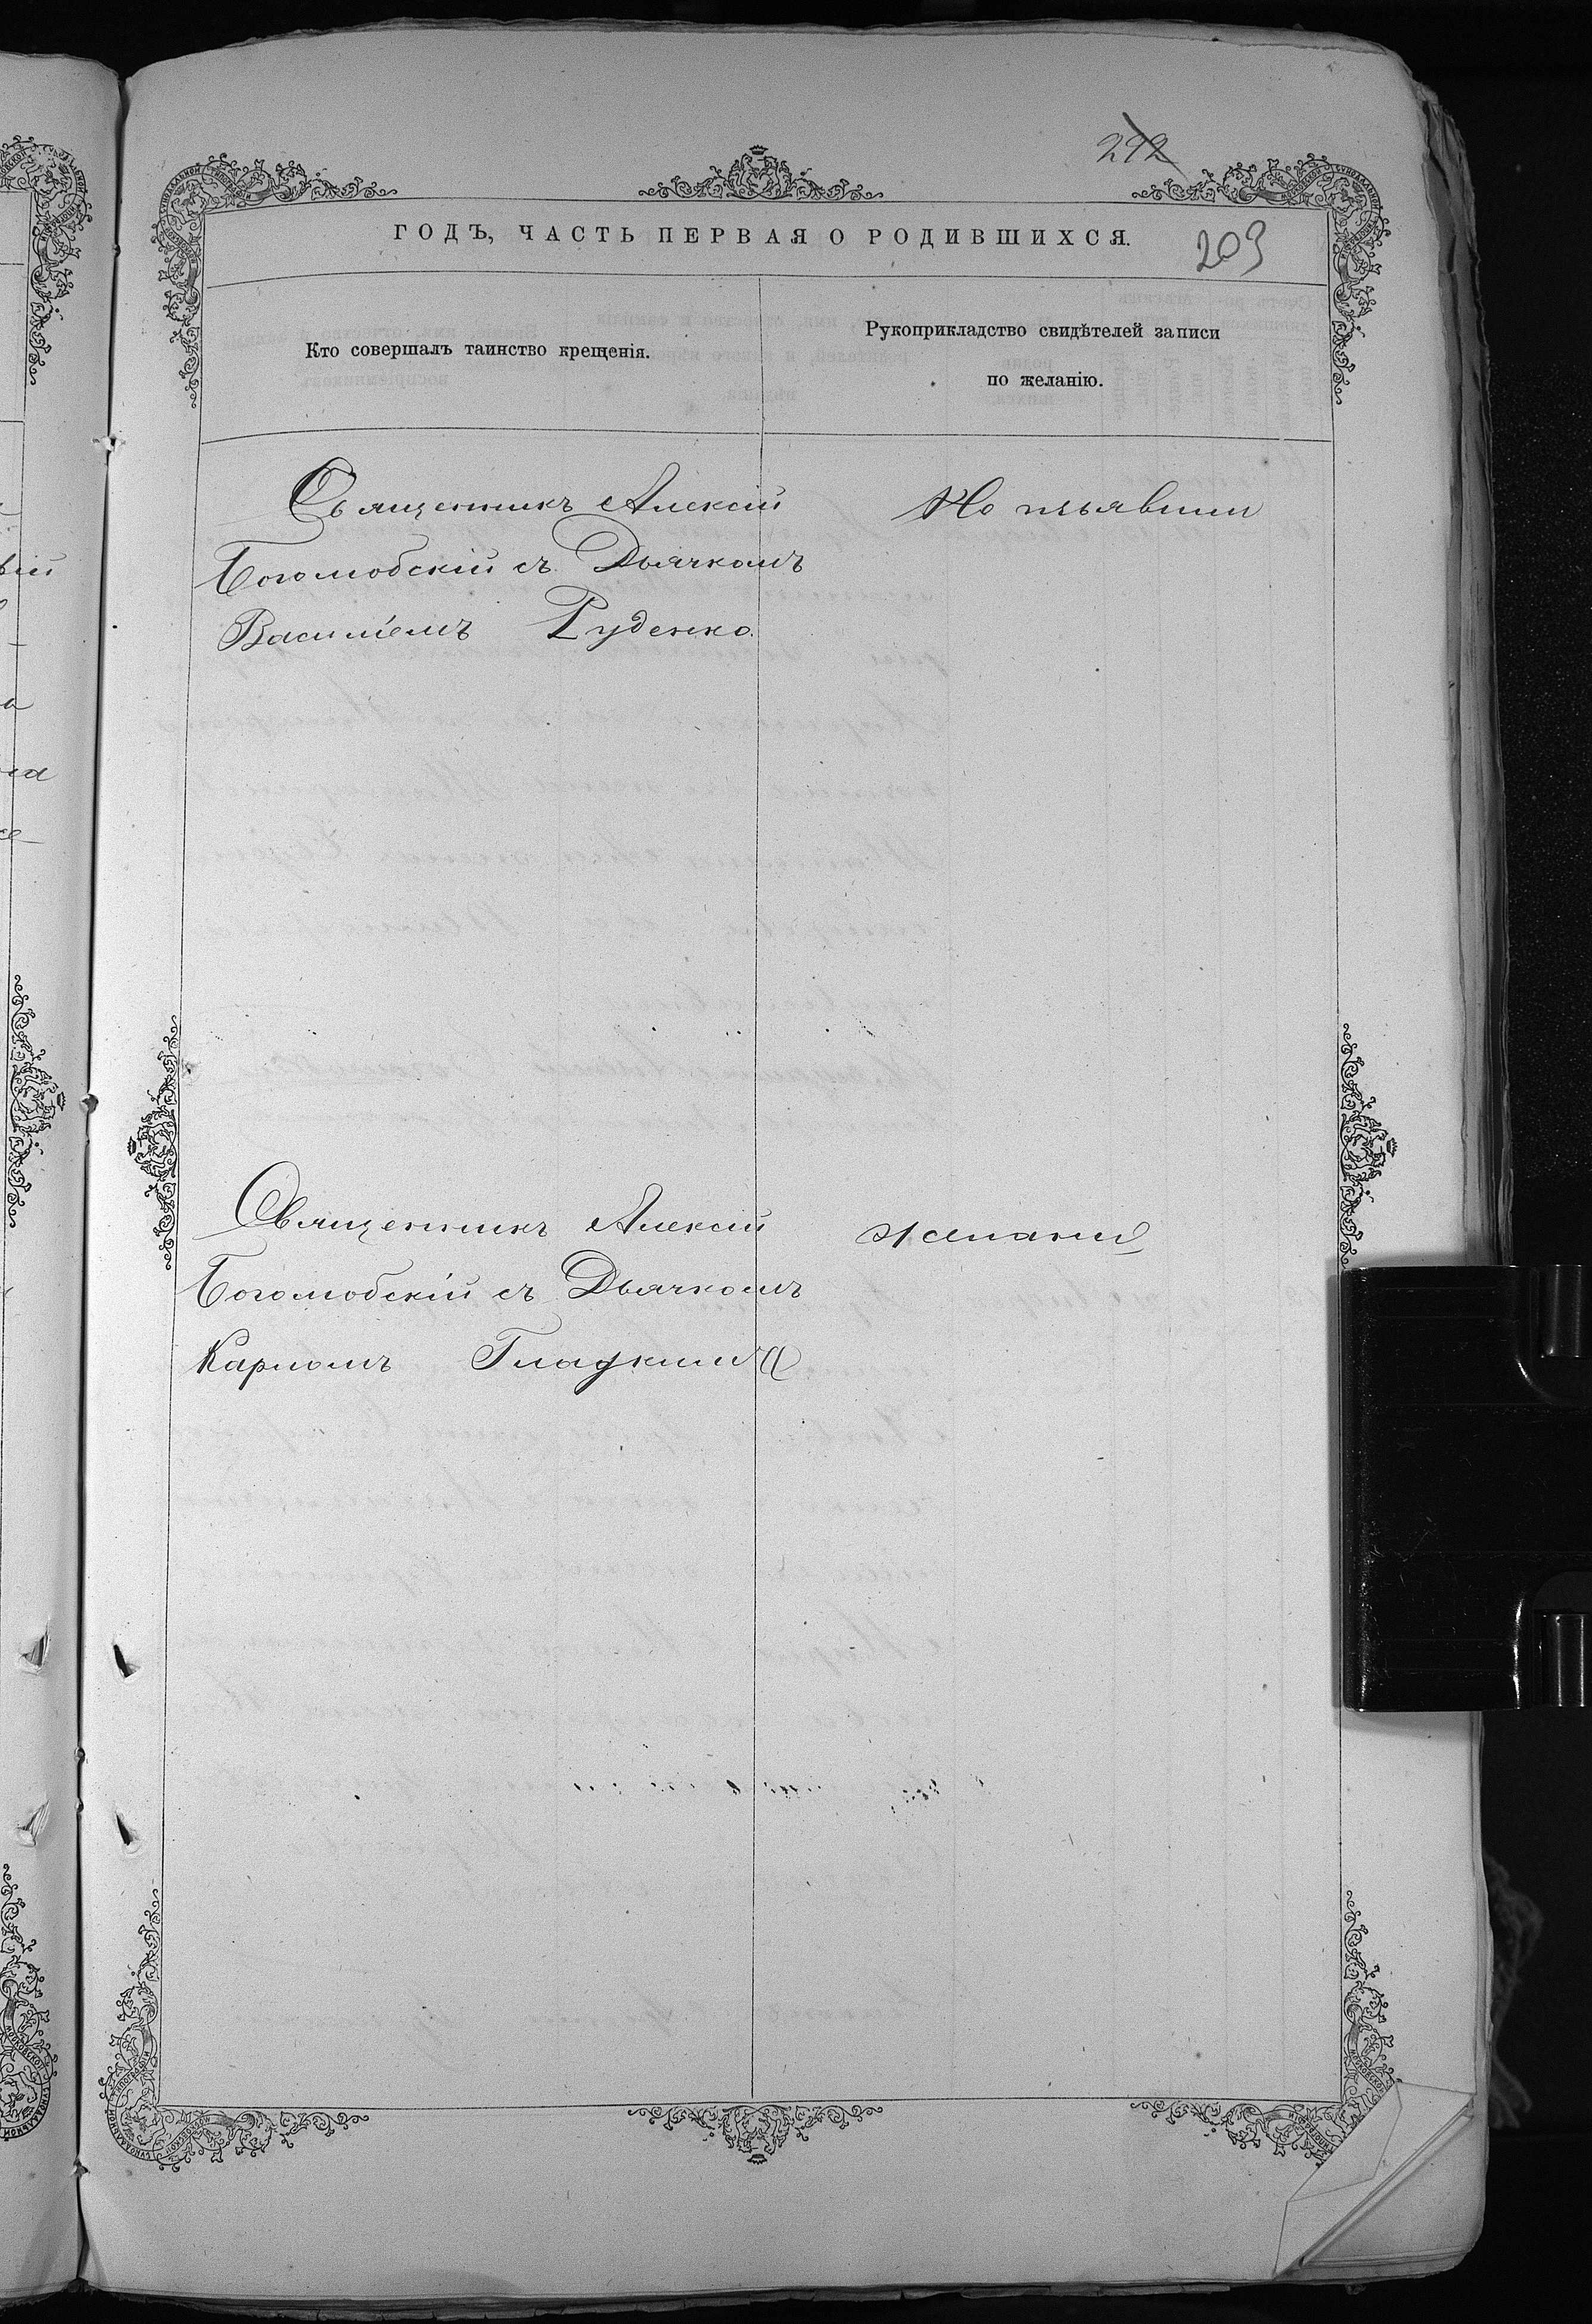 292
ГОДЪ, ЧАСТЬ ПЕРВАЯ О РОДИВШИХСЯ.
203
Кто совершалъ таинство крещенія.
Рукоприкладство свидѣтелей записи
по желанію.
Священникъ Алексій
Боголюбскій съ Дьячкомъ
Василіемъ Руденко.
Не изъявили
Священникъ Алексій
Боголюбскій съ Дьячкомъ
Карпомъ Гладкимъ
желанія